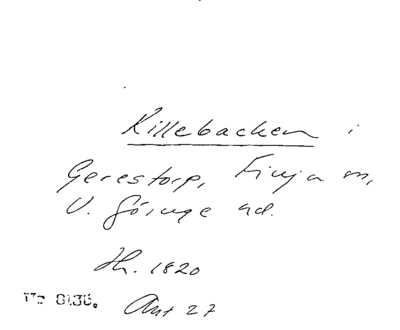 Killebacken i
Gerestorp, Finja sn,
V. Göinge hd.
Hr. 1820
8136.
Ant 27